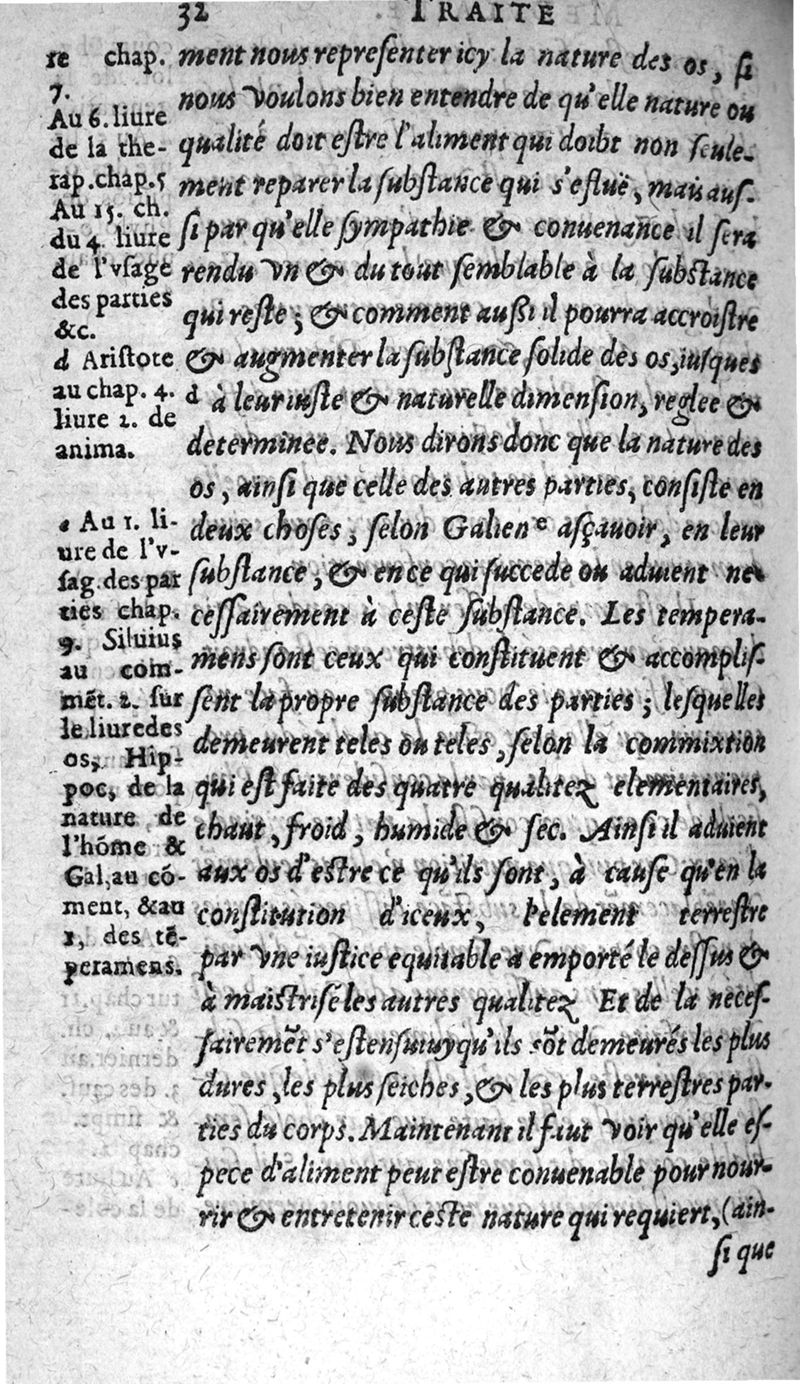 32 TRAITE
re chap.
7.
Au 6. liure
de la the-
rap. chap. 5
Au 15. ch.
du 4. liure
de l'vsage
des parties
&c.
d Aristote
au chap. 4.
liure 2. de
anima.
e Au 1. li-
ure de l'v-
sag. des par
ties chap.
9. Siluius
au com-
mēt. 2. sur
le liure des
os, Hip-
poc, de la
nature de
l'hōme &
Gal, au cō-
ment, & au
1, des tē-
peramens.
ment nous representer icy la nature des os, si
nous voulons bien entendre de qu'elle nature ou
qualité doit estre l'aliment qui doibt non seule-
ment reparer la substance qui s'esluë, mais aus-
si par qu'elle sympathie & conuenance il sera
rendu vn & du tout semblable à la substance
qui reste; & comment aussi il pourra accroistre
& augmenter la substance solide des os, iusques
d à leur iuste & naturelle dimension, reglee &
determinee. Nous dirons donc que la nature des
os, ainsi que celle des autres parties, consiste en
deux choses, selon Galien e asçauoir, en leur
substance, & en ce qui succede ou aduient ne-
cessairement à ceste substance. Les tempera-
mens sont ceux qui constituent & accomplis-
sent la propre substance des parties; lesquelles
demeurent teles ou teles, selon la commixtion
qui est faite des quatre qualitez elementaires,
chaut, froid, humide & sec. Ainsi il aduient
aux os d'estre ce qu'ils sont, à cause qu'en la
constitution d'iceux, l'element terrestre
par vne iustice equitable a emporté le dessus &
à maistrisé les autres qualitez Et de la neces-
sairemēt s'est ensuiuy qu'ils sōt demeurés les plus
dures, les plus seiches, & les plus terrestres par-
ties du corps. Maintenant il faut voir qu'elle es-
pece d'aliment peut estre conuenable pour nour-
rir & entretenir ceste nature qui requiert, (ain-
si que